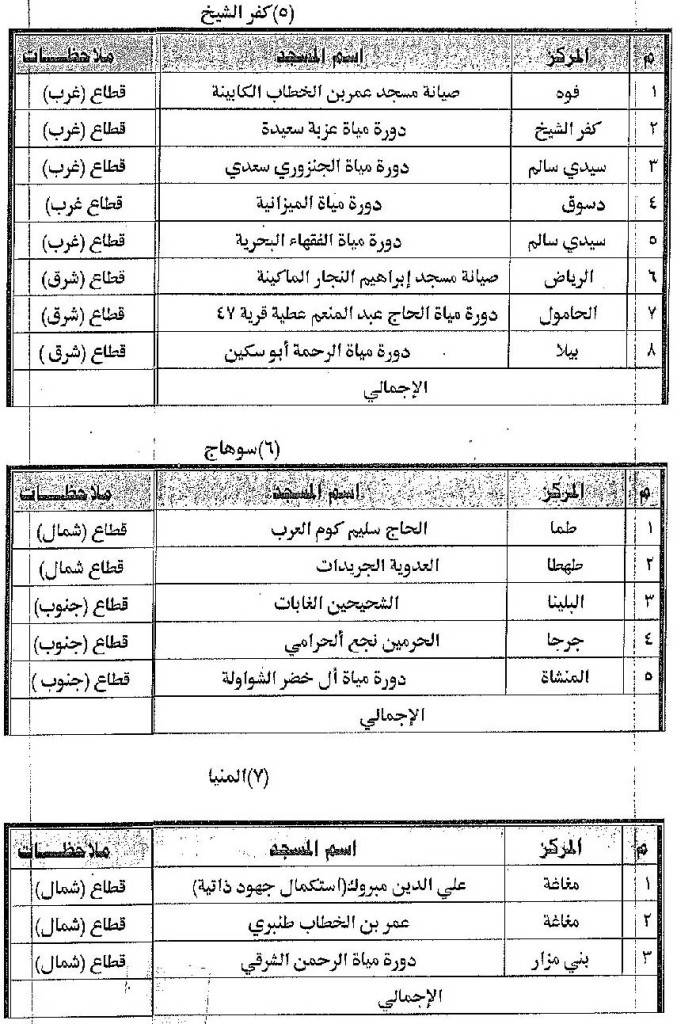 (٥)كفر الشيخ
م المركز اسم المسجد ملاحظـــات
١ فوه صيانة مسجد عمربن الخطاب الكابينة قطاع (غرب)
٢ كفر الشيخ دورة مياة عزبة سعيدة قطاع (غرب)
٣ سيدي سالم دورة مياة الجنزوري سعدي قطاع (غرب)
٤ دسوق دورة مياة الميزانية قطاع غرب)
٥ سيدي سالم دورة مياة الفقهاء البحرية قطاع (غرب)
٦ الرياض صيانة مسجد إبراهيم النجار الماكينة قطاع (شرق)
٧ الحامول دورة مياة الحاج عبد المنعم عطية قرية ٤٧ قطاع (شرق)
٨ بيلا دورة مياة الرحمة أبو سكين قطاع (شرق )
الإجمالي
(٦)سوهاج
م المركز اسم المسجد ملاحظـــات
١ طما الحاج سليم كوم العرب قطاع (شمال)
٢ طهطا العدوية الجريدات قطاع شمال)
٣ البلينا الشحيحين الغابات قطاع (جنوب)
٤ جرجا الحرمين نجع ألحرامي قطاع (جنوب)
٥ المنشاة دورة مياة أل خضر الشواولة قطاع (جنوب )
الإجمالي
(٧)المنيا
م المركز اسم المسجد ملاحظـــات
١ مغاغة علي الدين مبروك(استكمال جهود ذاتية) قطاع (شمال)
٢ مغاغة عمر بن الخطاب طنبري قطاع (شمال)
٣ بني مزار دورة مياة الرحمن الشرقي قطاع (شمال)
الإجمالي